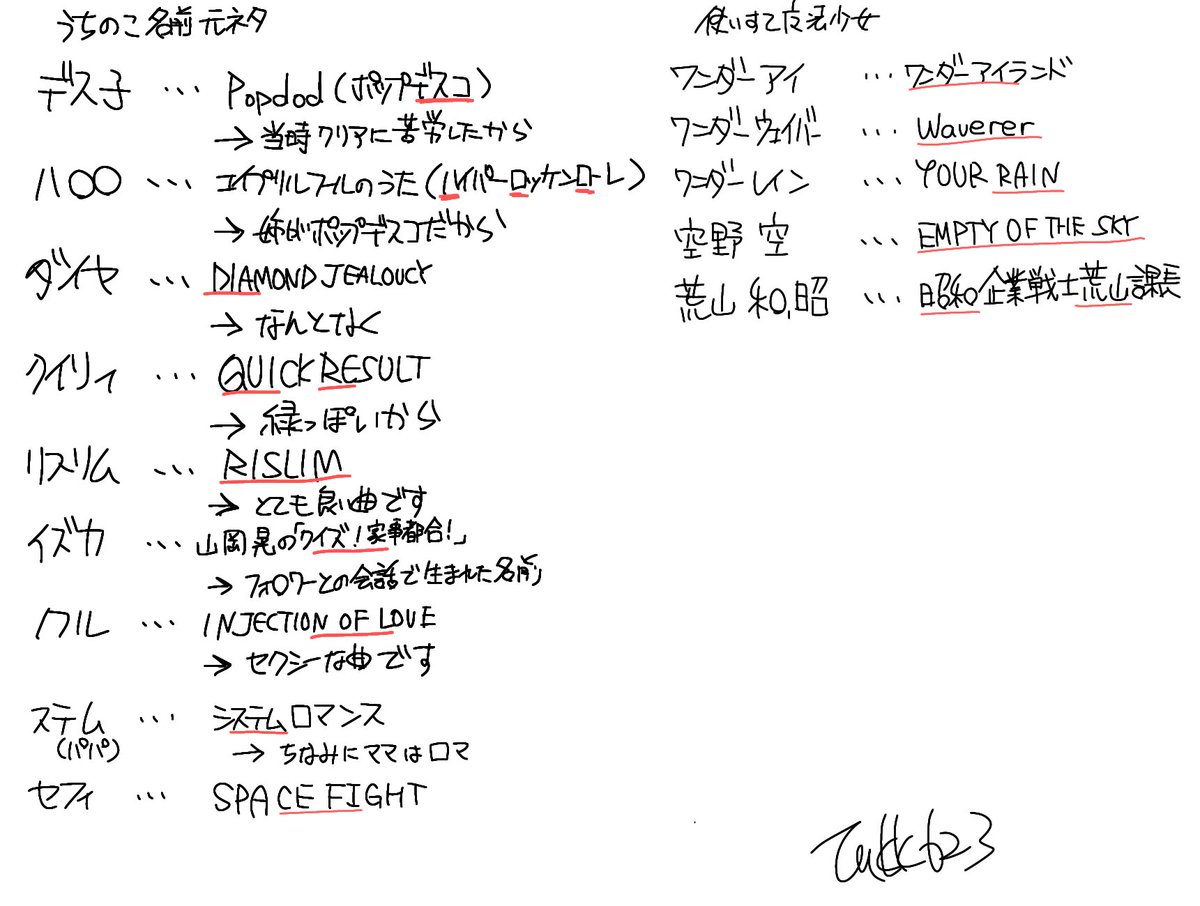 うちのこ名前元ネタ
デス子 … Popdod(ポップデスコ)
→ 当時クリアに苦労したから
ハロロ … エイプリルフールのうた(ハイパーロッケンローレ)
→ 姉がポップデスコだから
ダイヤ … DIAMOND JEALOUCY
→ なんとなく
クイリィ … QUICK RESULT
→ 緑っぽいから
リスリム … RISLIM
→ とても良い曲です
イズカ … 山岡晃の「クイズ!家事都合!」
→ フォロワーとの会話で生まれた名前
ノクル … INJECTION OF LOVE
→ セクシーな曲です
ステム … システムロマンス
(パパ) → ちなみにママはロマ
セフィ … SPACE FIGHT
使いすて魔法少女
ワンダーアイ … ワンダーアイランド
ワンダーウェイバー … Waverer
ワンダーレイン … YOUR RAIN
空野 空 … EMPTY OF THE SKY
荒山 和昭 … 昭和企業戦士荒山課長